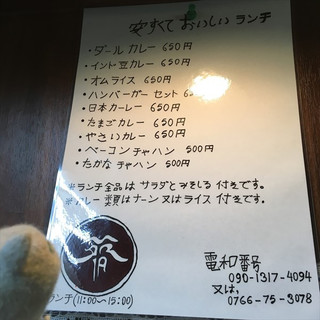 安すくて おいしい ランチ
・ダール カレー 650円
・イント豆カレー 650円
・オムライス 650円
・ハンバーガー セット 65
・日本カーレー 650円
・たまごカレー 650円
・やさいカレー 650円
・ベーコンチャハン 500円
・たかなチャハン 500円
※ランチ全品は サラダとみそしる 付きです。
※カレー 類はナーン又はライス 付きです。
電和番号
090-1317-4094
又は,
0766-75-3078
ランチ(11:00〜15:00)